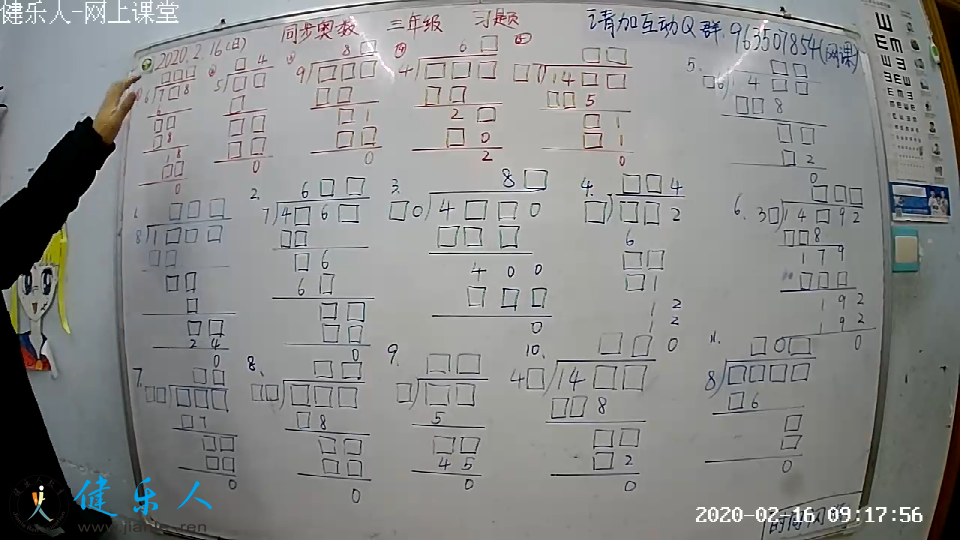 健乐人-网上课堂
同步奥数 三年级 习题 请加互动Q群 963507854(网课)
2020.2.16(日)
□□□
6)7□8
6
□□
□8
18
□□
0
□4
5)□□
□
□□
□□
0
8□
9)□□□
□□
□1
□□
0
6□
4)□□□
□□
2□
□0
2
□□
□7)14□□
□□5
□1
□1
0
5.
□□
□6)14□□
□□8
□□
□2
0
1.
□□□
8)1□□□
□□
□□
□
□□
24
0
2.
6□□
7)4□6□
□□
□6
6□
□□
□□
0
3.
8□
□0)4□□0
□□□
400
□□□
0
4.
□□4
□)□□2
6
□□
□1
12
12
0
6.
□□□
3□)14□92
□□8
179
□□□
192
192
0
7.
□□
□□)□□□
□7
□□
□□
0
8.
□□
□□)□□□
□8
□□
□□
0
9.
□□
□)□□
5
□□
45
0
10.
□□
4□)14□□
□□8
□□
□2
0
11.
□0□
8)□□□□
□6
□
□
0
健乐人
2020-02-16 09:17:56